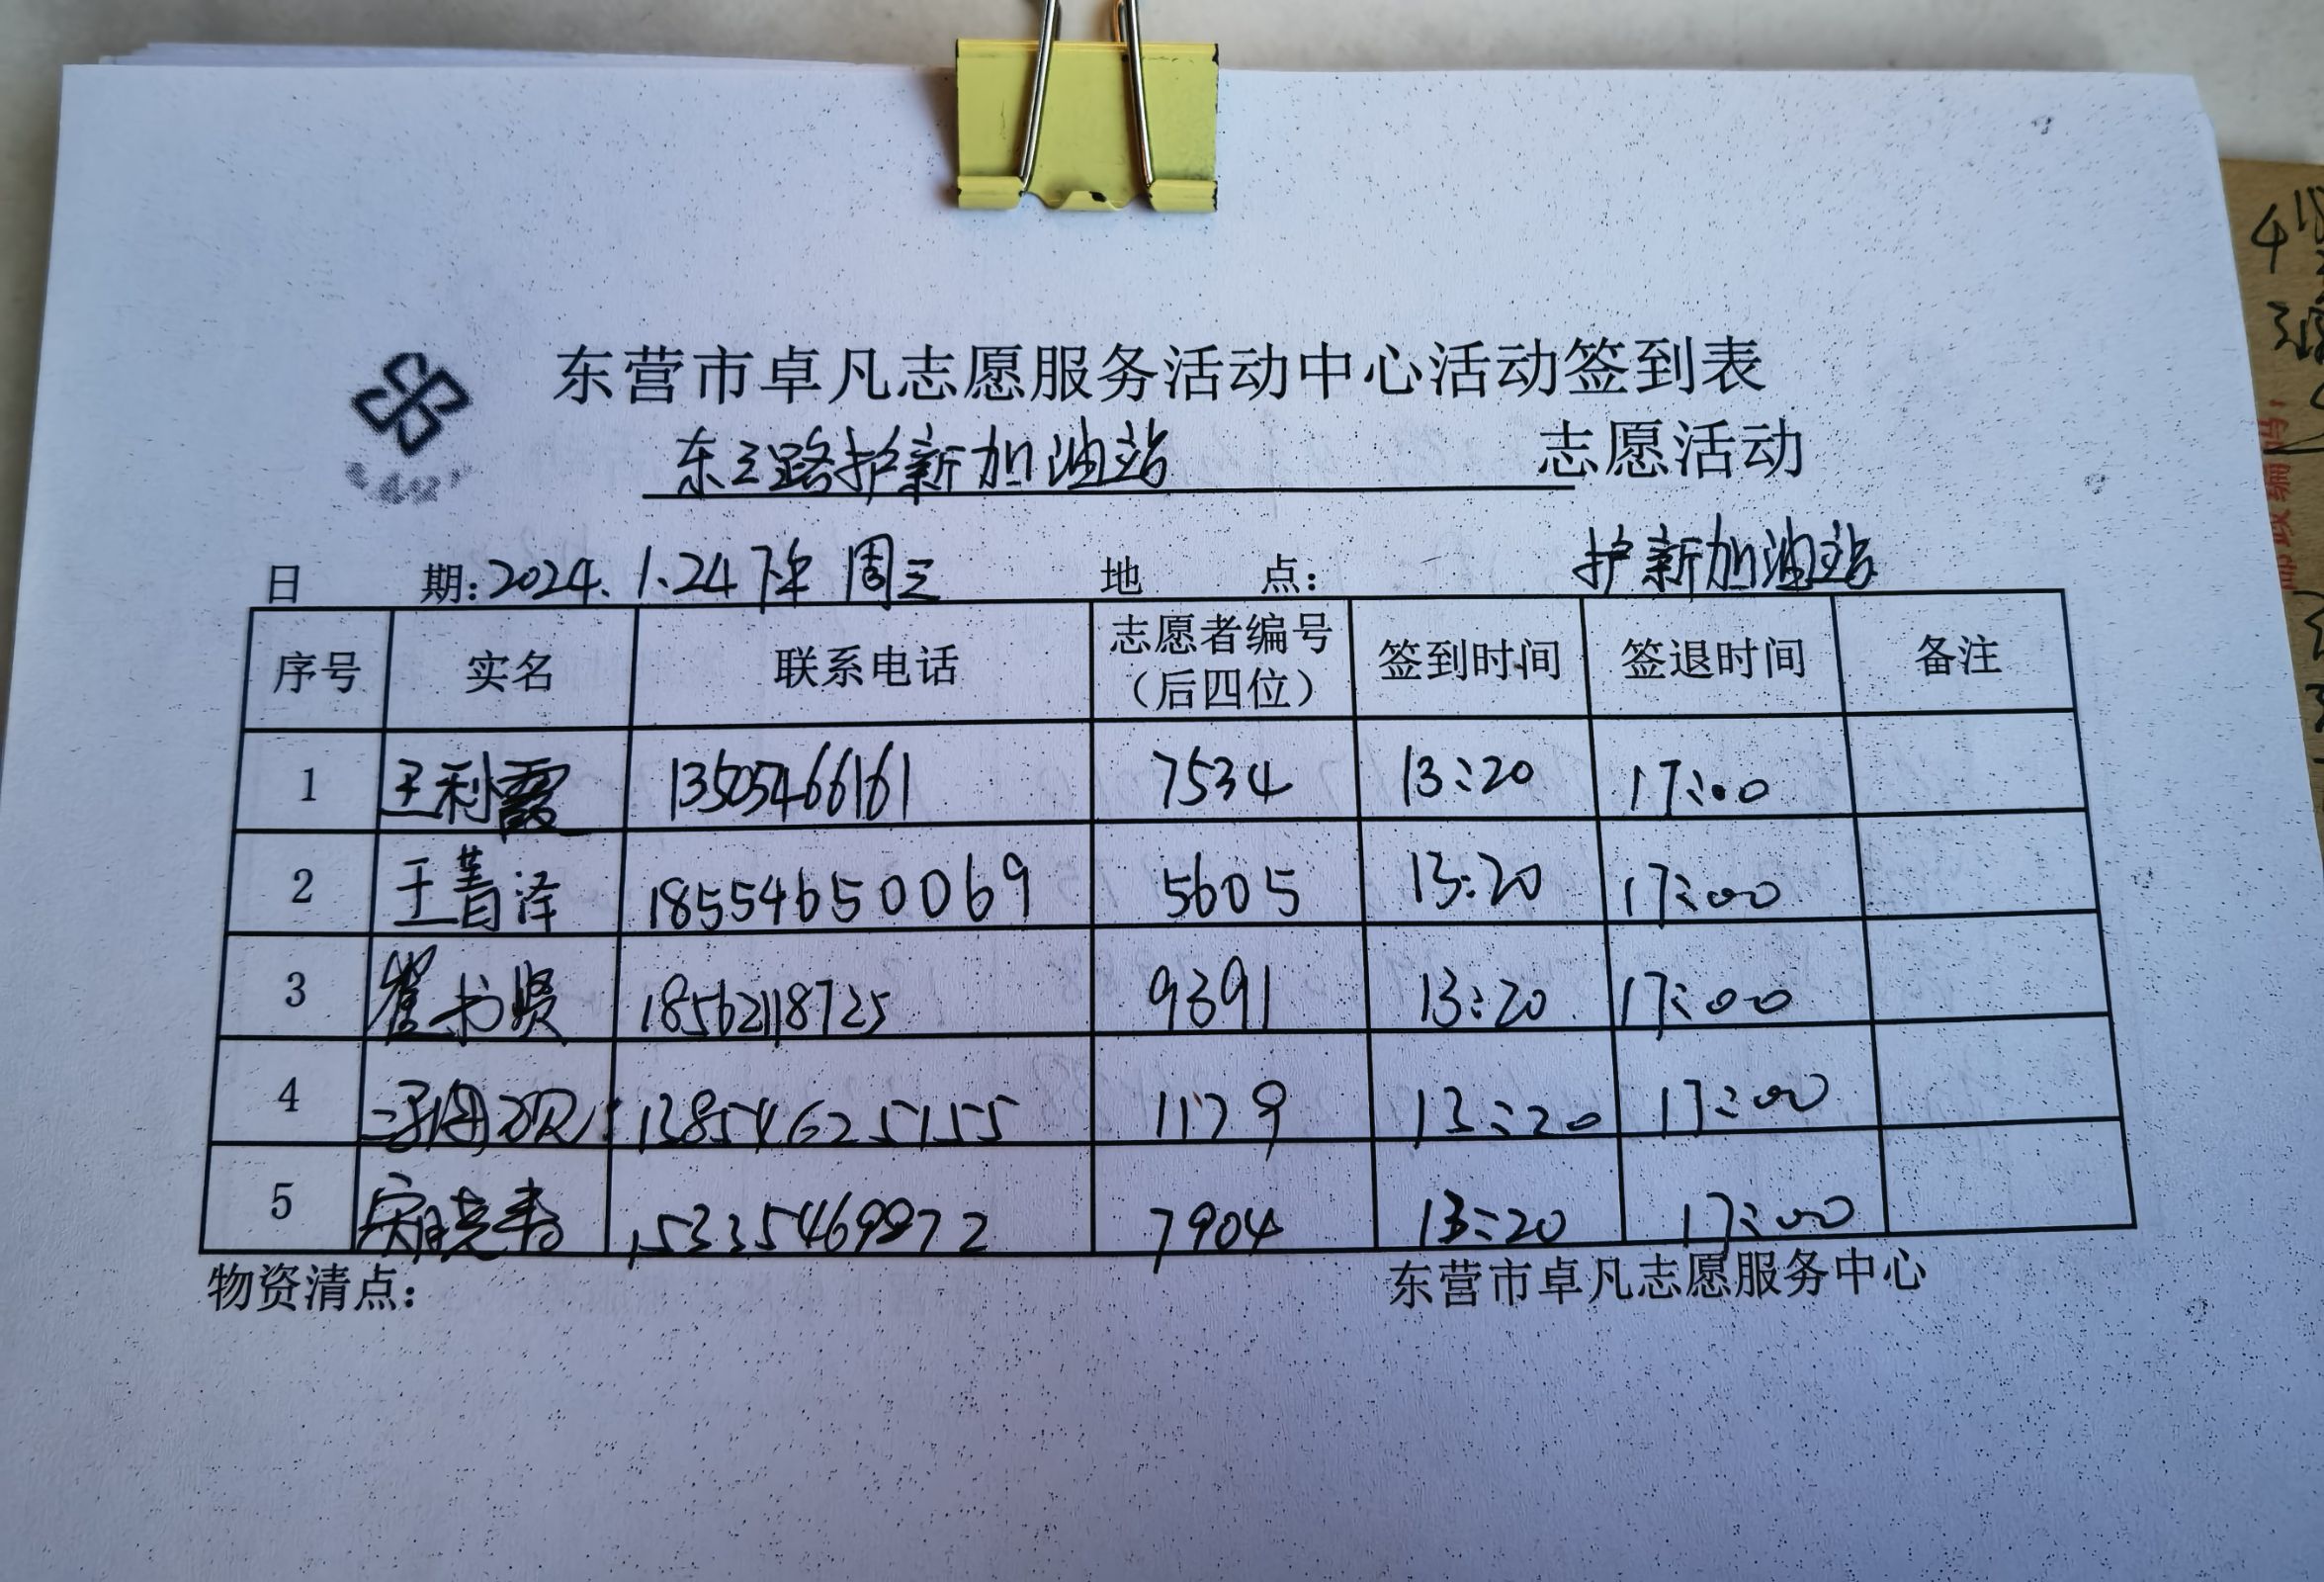 东营市卓凡志愿服务活动中心活动签到表
东三路护新加油站 志愿活动
日 期: 2024. 1.24 下午 周三 地 点: 护新加油站
序号 实名 联系电话 志愿者编号（后四位） 签到时间 签退时间 备注
1 王利霞 13505466161 7534 13:20 17:00
2 王菁泽 18554650069 5605 13:20 17:00
3 崔书贤 18562118725 9391 13:20 17:00
4 13854625155 1179 13:20 17:00
5 宋晓春 15335469972 7904 13:20 17:00
物资清点: 东营市卓凡志愿服务中心